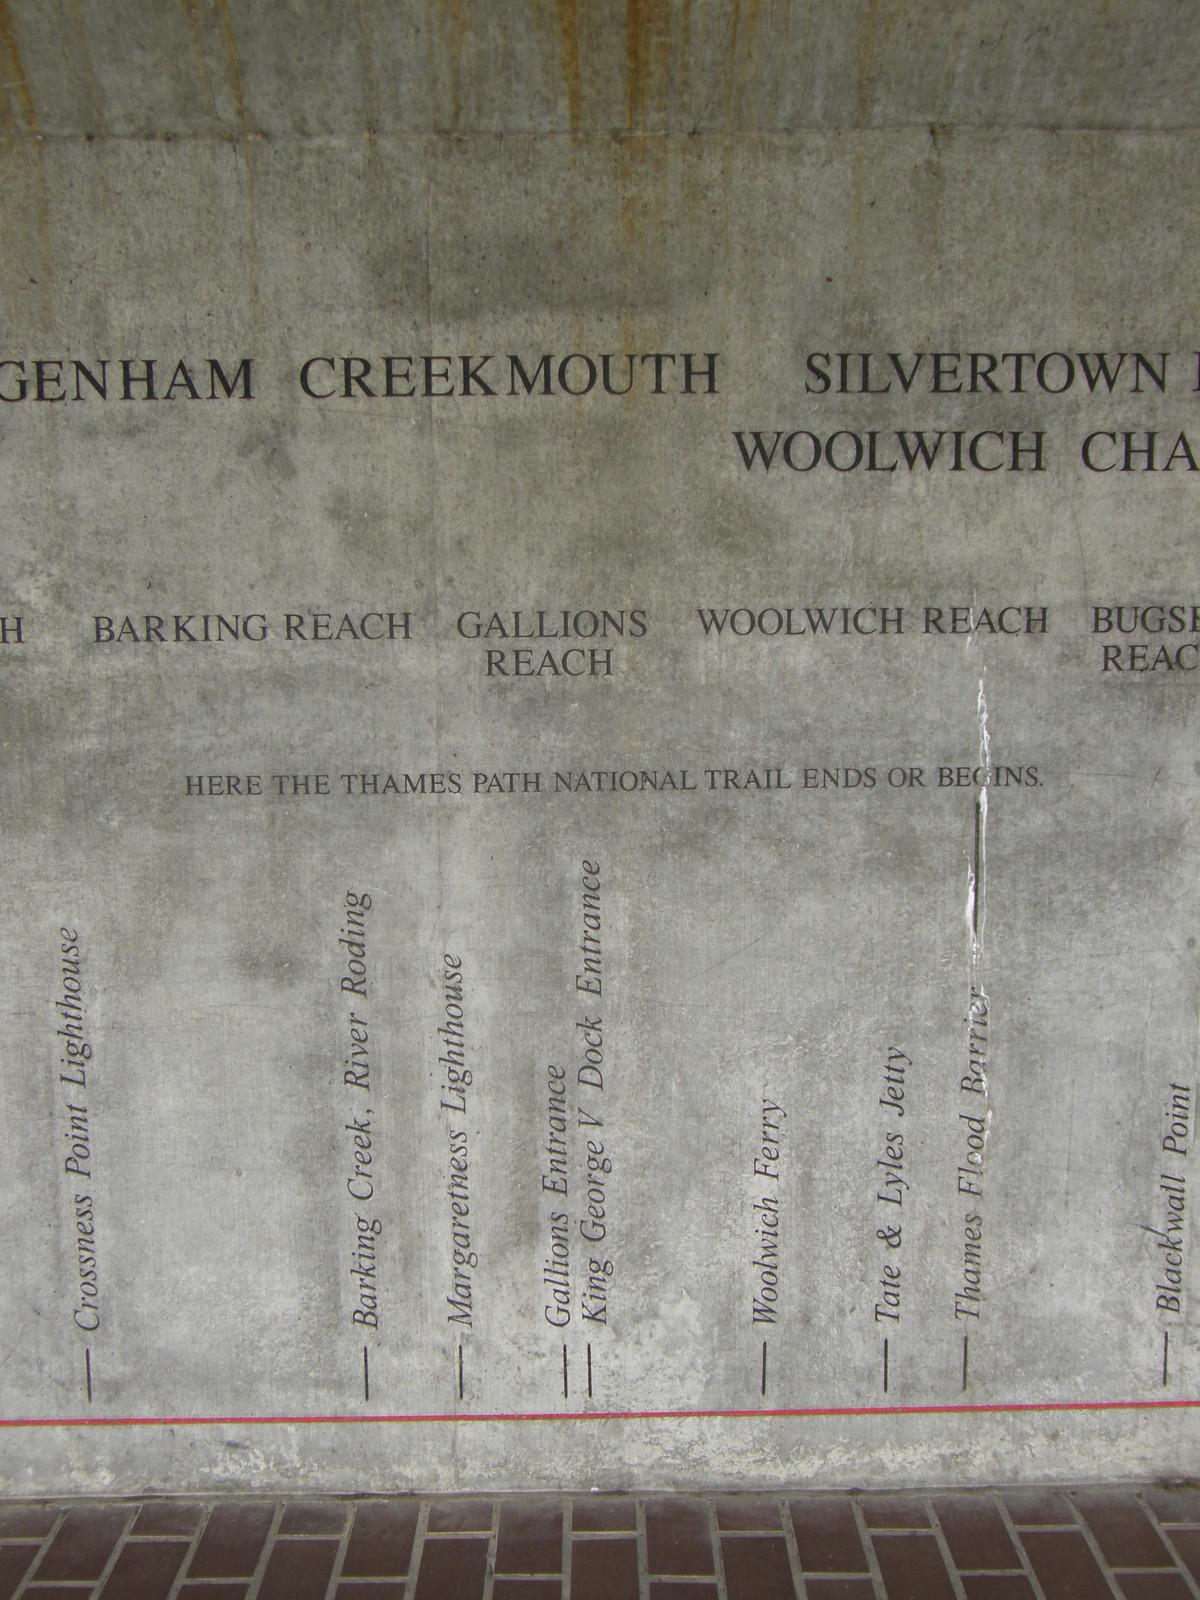 GENHAM CREEKMOUTH SILVERTOWN
WOOLWICH CHA
H BARKING REACH GALLIONS REACH WOOLWICH REACH BUGSB REAC
HERE THE THAMES PATH NATIONAL TRAIL ENDS OR BEGINS.
Crossness Point Lighthouse
Barking Creek, River Roding
Margaretness Lighthouse
Gallions Entrance
King George V Dock Entrance
Woolwich Ferry
Tate & Lyles Jetty
Thames Flood Barrier
Blackwall Point